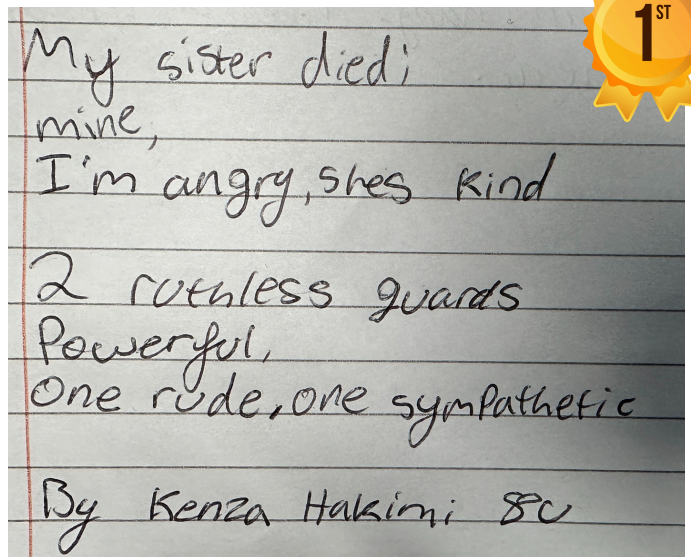 1ST
My sister died;
mine,
I'm angry, shes kind
2 ruthless guards
Powerful,
One rude, one sympathetic
By Kenza Hakimi 8c